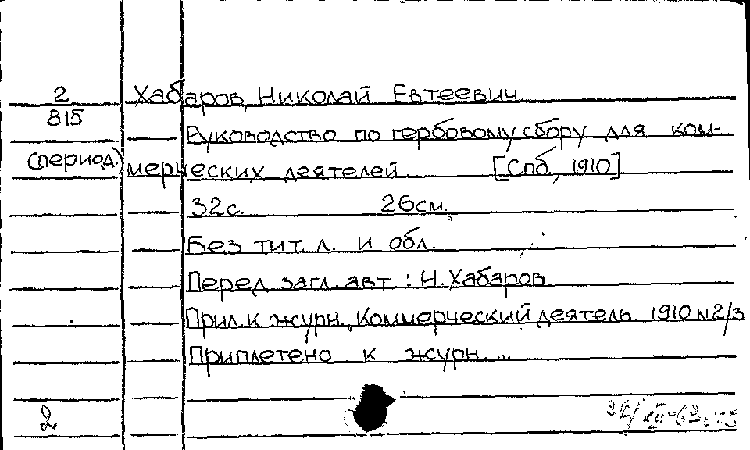 2 Хабаров, Николай Евтеевич
815
Руководство по гербовому сбору для ком-
(период.) мерческих деятелей. [Спб, 1910]
32с. 26см.
Без тит. л. и обл.
Перед загл. авт: Н. Хабаров
Прил. к журн. Коммерческий деятель. 1910 №2/3
Приплетено к журн...
2